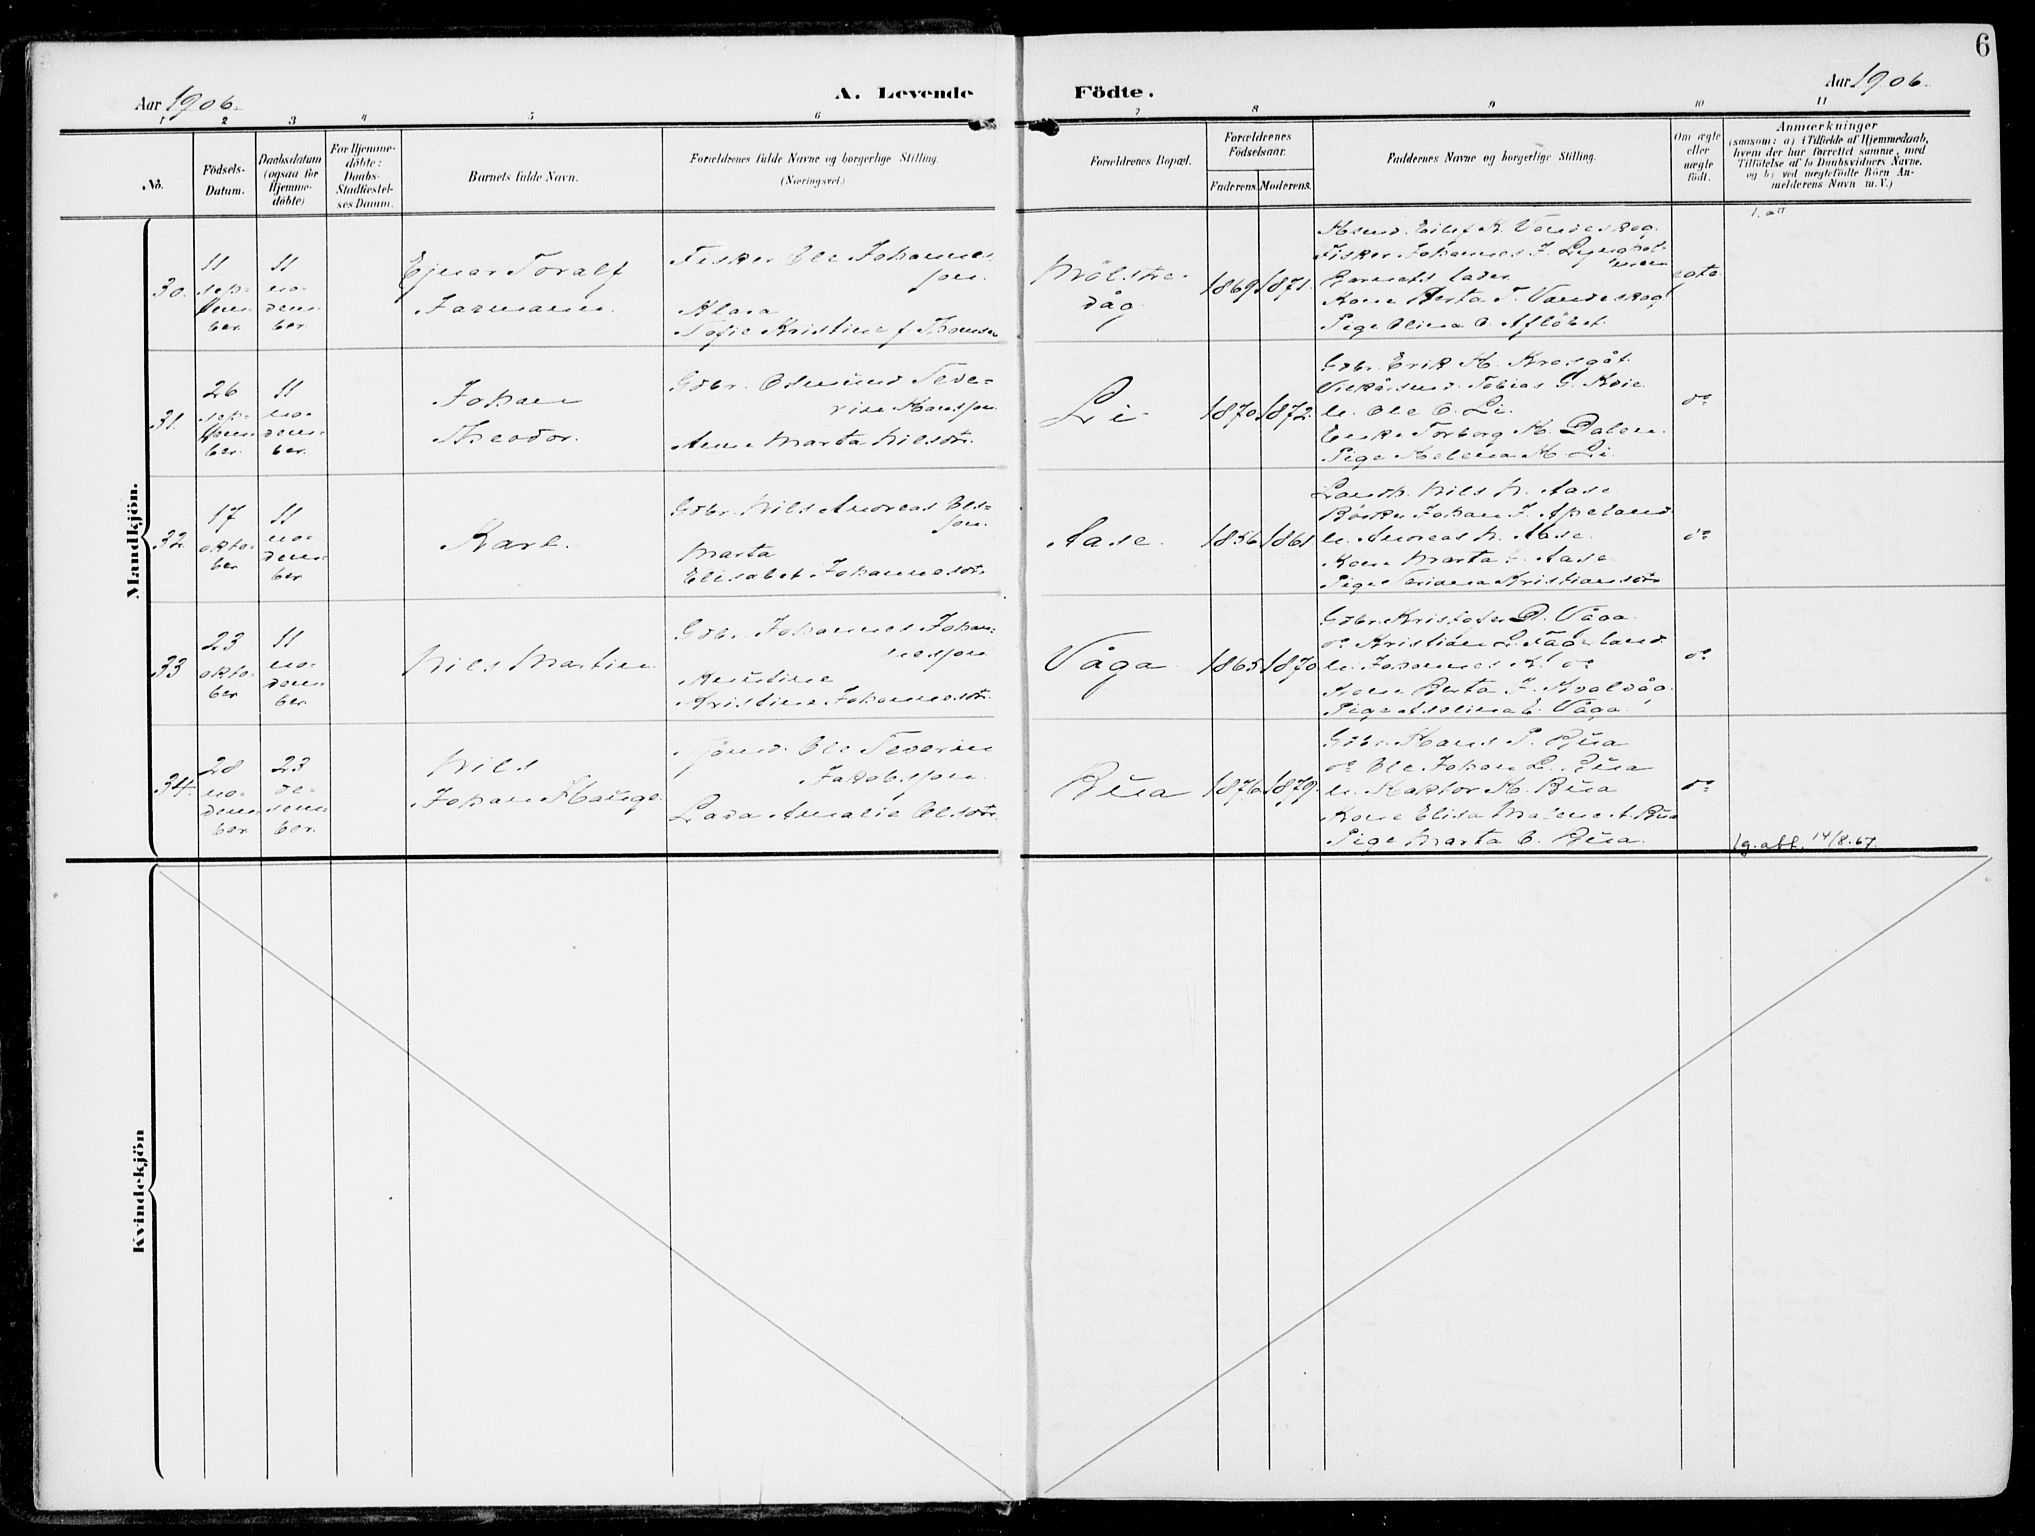 6
Aar 1906.
A. Levende Födte.
Aar 1906.
1 2 3 4 5 6 7 8 9 10 11
No.
Födsels-
Datum.
Daabsdatum
(ogsaa for
Hjemme-
döbte)
For Hjemme-
döbte:
Daabs-
Stadfæstel-
ses Datum.
Barnets fulde Navn.
Forældrenes fulde Navne og borgerlige Stilling.
(Næringsvei.)
Forældrenes Bopæl.
Forældrenes
Födselsaar.
Faderens. Moderens.
Faddernes Navne og borgerlige Stilling.
Om ægte
eller
uægte
födt.
Anmærkninger
(saasom: a) i Tilfælde af Hjemmedaab,
hvem der har forrettet samme, med
Tilföielse af to Daabsvidners Navne.
og b) ved uægtefödte Börn An-
melderens Navn m. V.)
Mandkjön.
30.
11
sep-
tem-
ber.
11
no-
vem-
ber.
Ejnar Toralf
Farmann.
Fisker Ole Johannes
sen.
Klara
Sofie Kristine f. Thomsen
Mölstre-
våg
1869 1871.
Eilef K. Vandeskog
Fisker Johannes J. Lynghol-
men
Barnets fader
Kone Berta S. Vandeskog
Pige Olina O. Aflöbet.
egte
31.
26
sep-
tem-
ber.
11
no-
vem-
ber.
Johan
Theodor.
Gdbr. Osmund Seve-
rin Hansen.
Anne Marta Nilsdtr.
Li
1870 1872.
Gdbr. Erik H. Kresgåt.
Tobias G. Kvie
u. Ole O. Li.
Enke Torborg H. Dalen.
Pige Helena H. Li
do
32.
17
okto-
ber
11
no-
vem-
ber
Karl.
Gdbr. Nils Andreas Ols-
sen.
Marta
Elisabet Johannesdtr.
Aase.
1856 1861.
Landh. Nils N. Aase
Johan J. Apeland
u. Andreas N. Aase.
Kone Marta Aase
Pige Seriana Kristiansdtr
do
33.
23
okto-
ber
11
no-
vem-
ber.
Nils Martin
Gdbr. Johannes Johan-
nessen
Knutine
Kristine Johannesdtr.
Våga
1865 1870.
Gdbr. Kristofer D. Våga.
do Kristian L. Fagerland.
u. Johannes K. do
Kone Berta J. Kvalvåg.
Pige Aslina E. Våga.
do
34.
28
no-
vem-
ber
23
de-
sem-
ber.
Nils
Johan Hauge.
Ole Severin
Jakobssen.
Lava Amalie Olsdtr.
Büa
1876 1879.
Gdbr. Hans P. Büa
do Ole Johan L. Büa
u. Kaptor H. Büa
Kone Elisa Malene A. Büa
Pige Marta O. Büa.
do
l.g.att. 14/8.67.
Kvindekjön